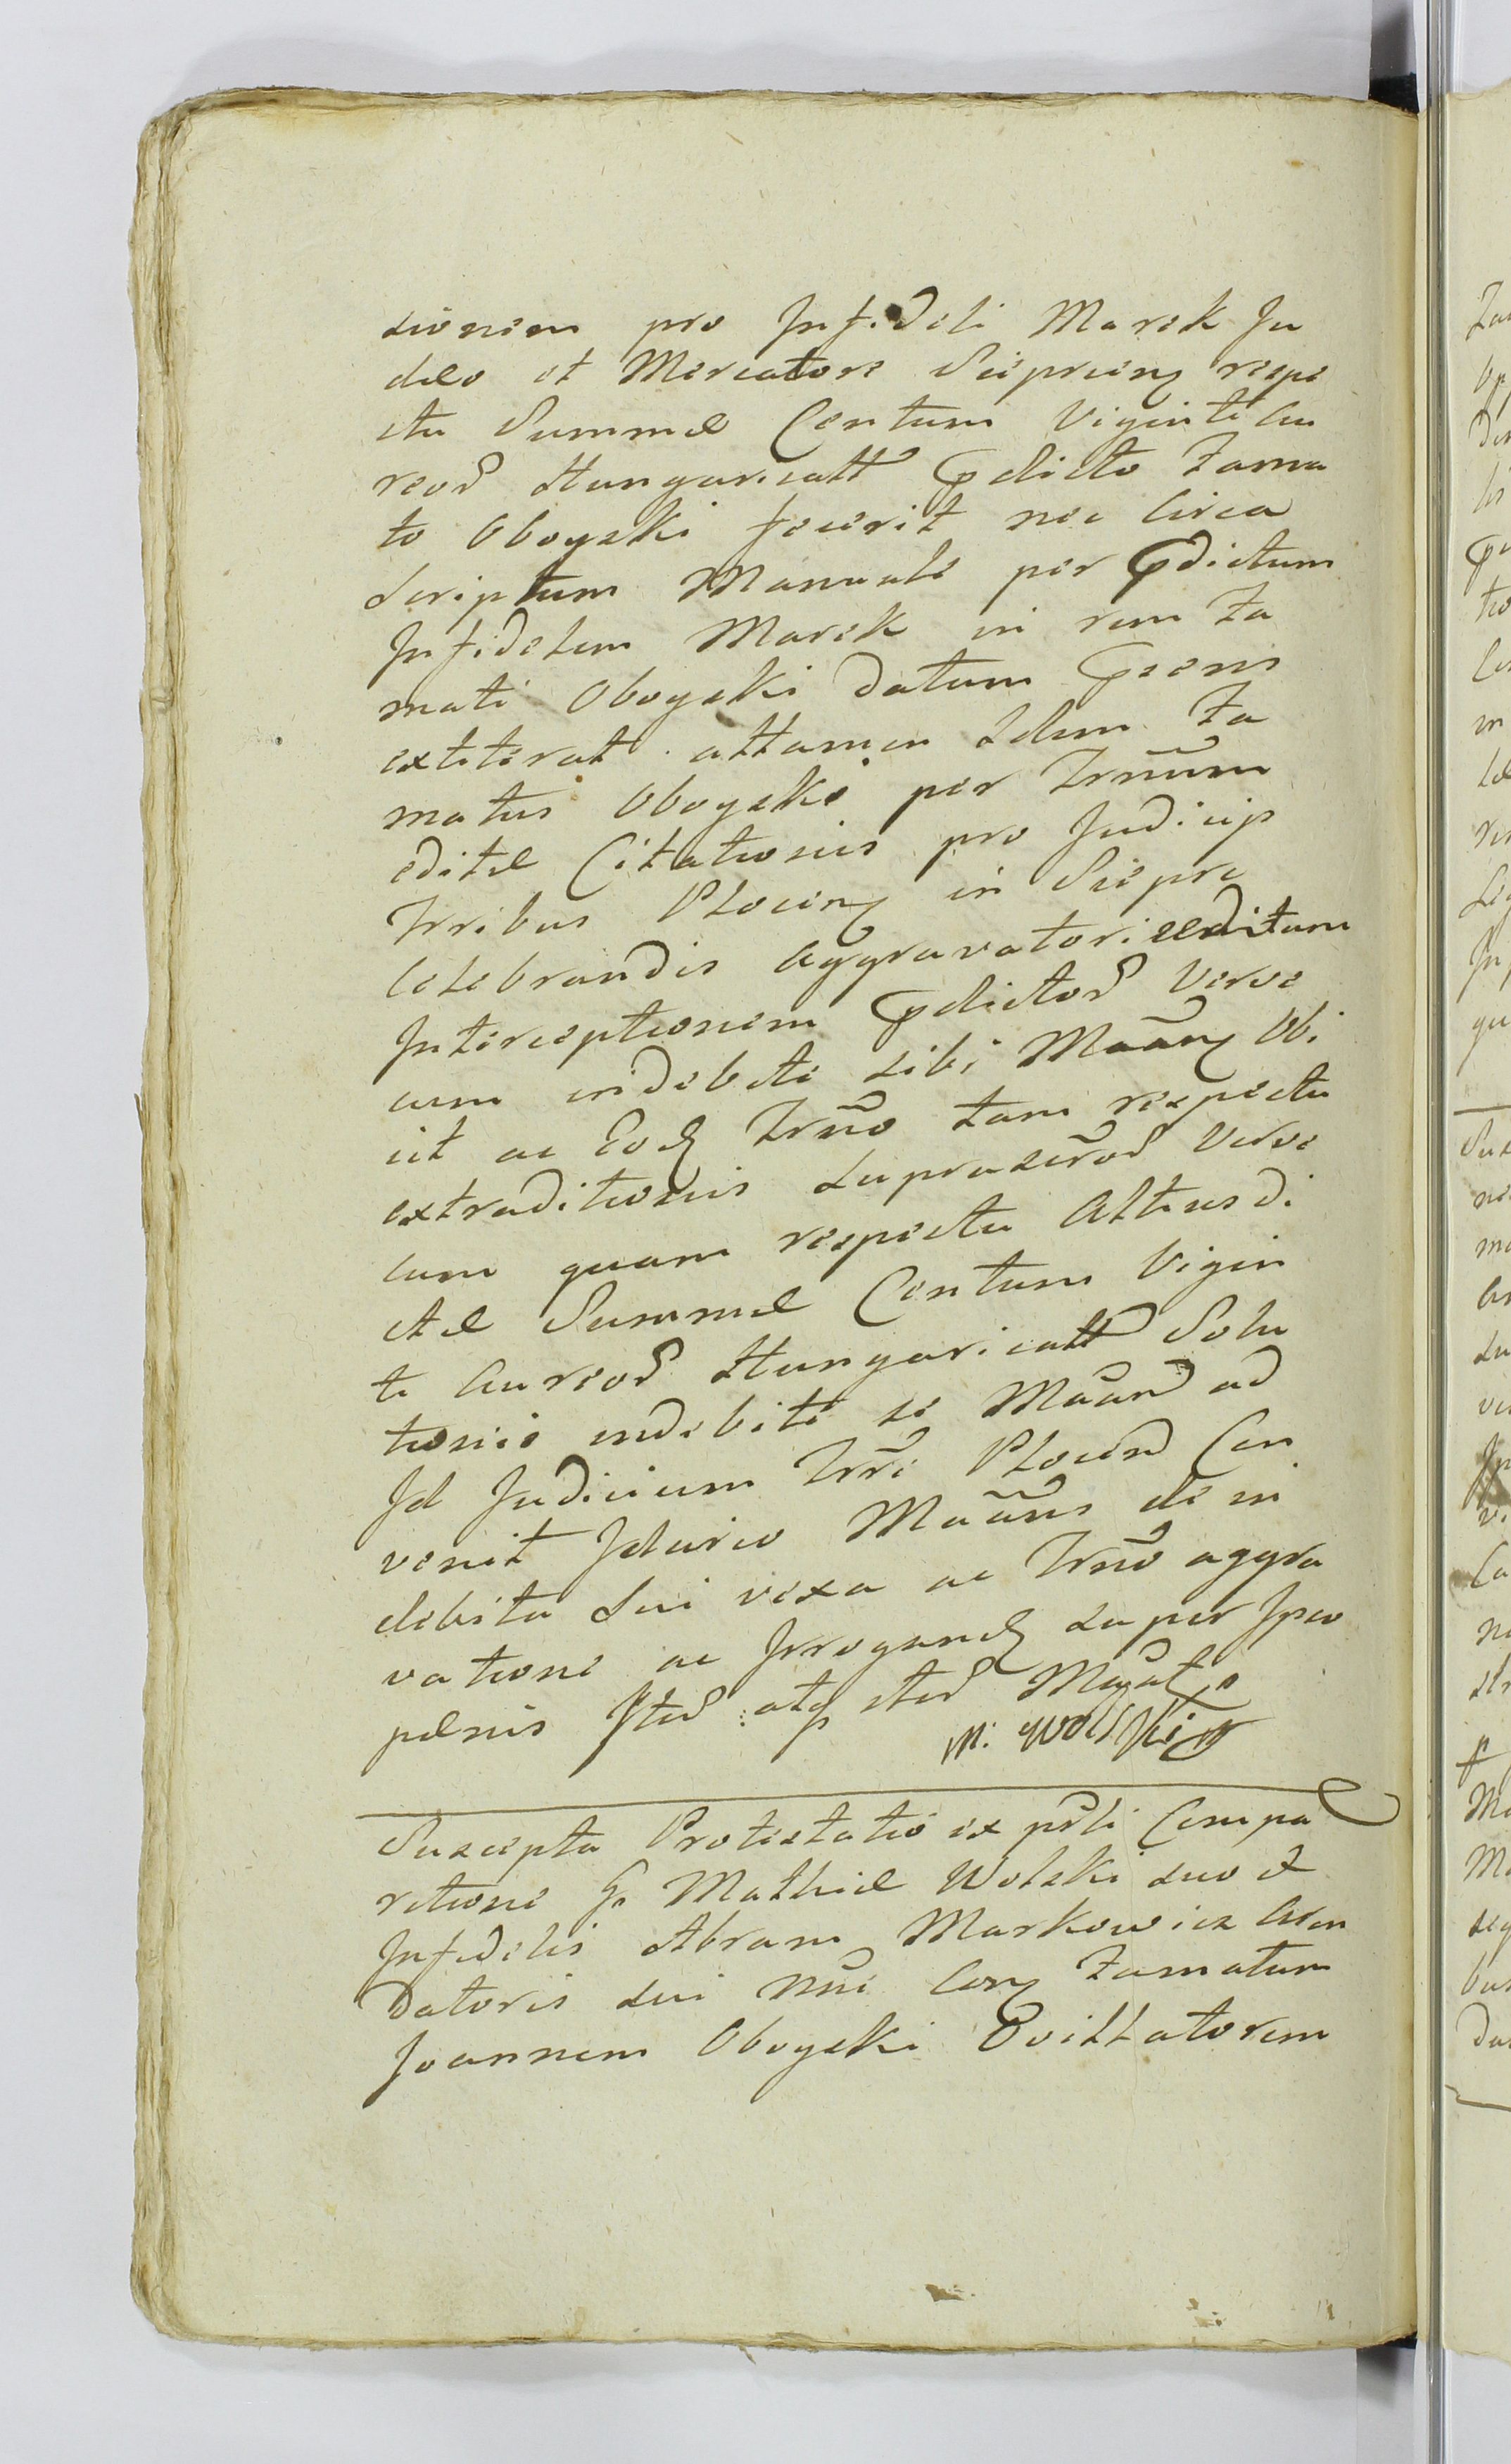 sionem pro Infideli Marek Ju
daeo et Mercatore Sieprcien respe
ctu Summae Centum Viginti Au
reor Hungaricall pdicto Fama
to Oboyski fecerit nec circa
Scriptum Manuale per pdictum
Infidelem Marek in rem Fa
mati Oboyski datum psens
extiterat attamen Idem Fa
matus Oboyski per Trnum
editae Citationis pro Judicijs
Trribus Plocen in Sieprc
celebrandis aggravatorie editam
Interceptionem pdictor Verve
cum indebite sibi Maan Obi
cit ac Eod Trno tam respectu
extraditionis suprascror Verve
cum quam respectu Altiusdi
ctae Summae Centum Vigin
ti Aureor Hungaricall Solu
tionis indebite se Maan ad
Id Judicium Trre Plocen Con
venit Idcirco Maans de in
debita Sui vexa ac Trno aggra
vatione ac Irrogand super Ipso
paenis Iter atq iter Magat
M: Wolski
Suscepta Protestatio ex psli Compa
ritione G. Mathiae Wolski suo et
Infidelis Abram Markowicz Aren
datoris sui nne Con Famatum
Joannem Oboyski Advitalitatorem